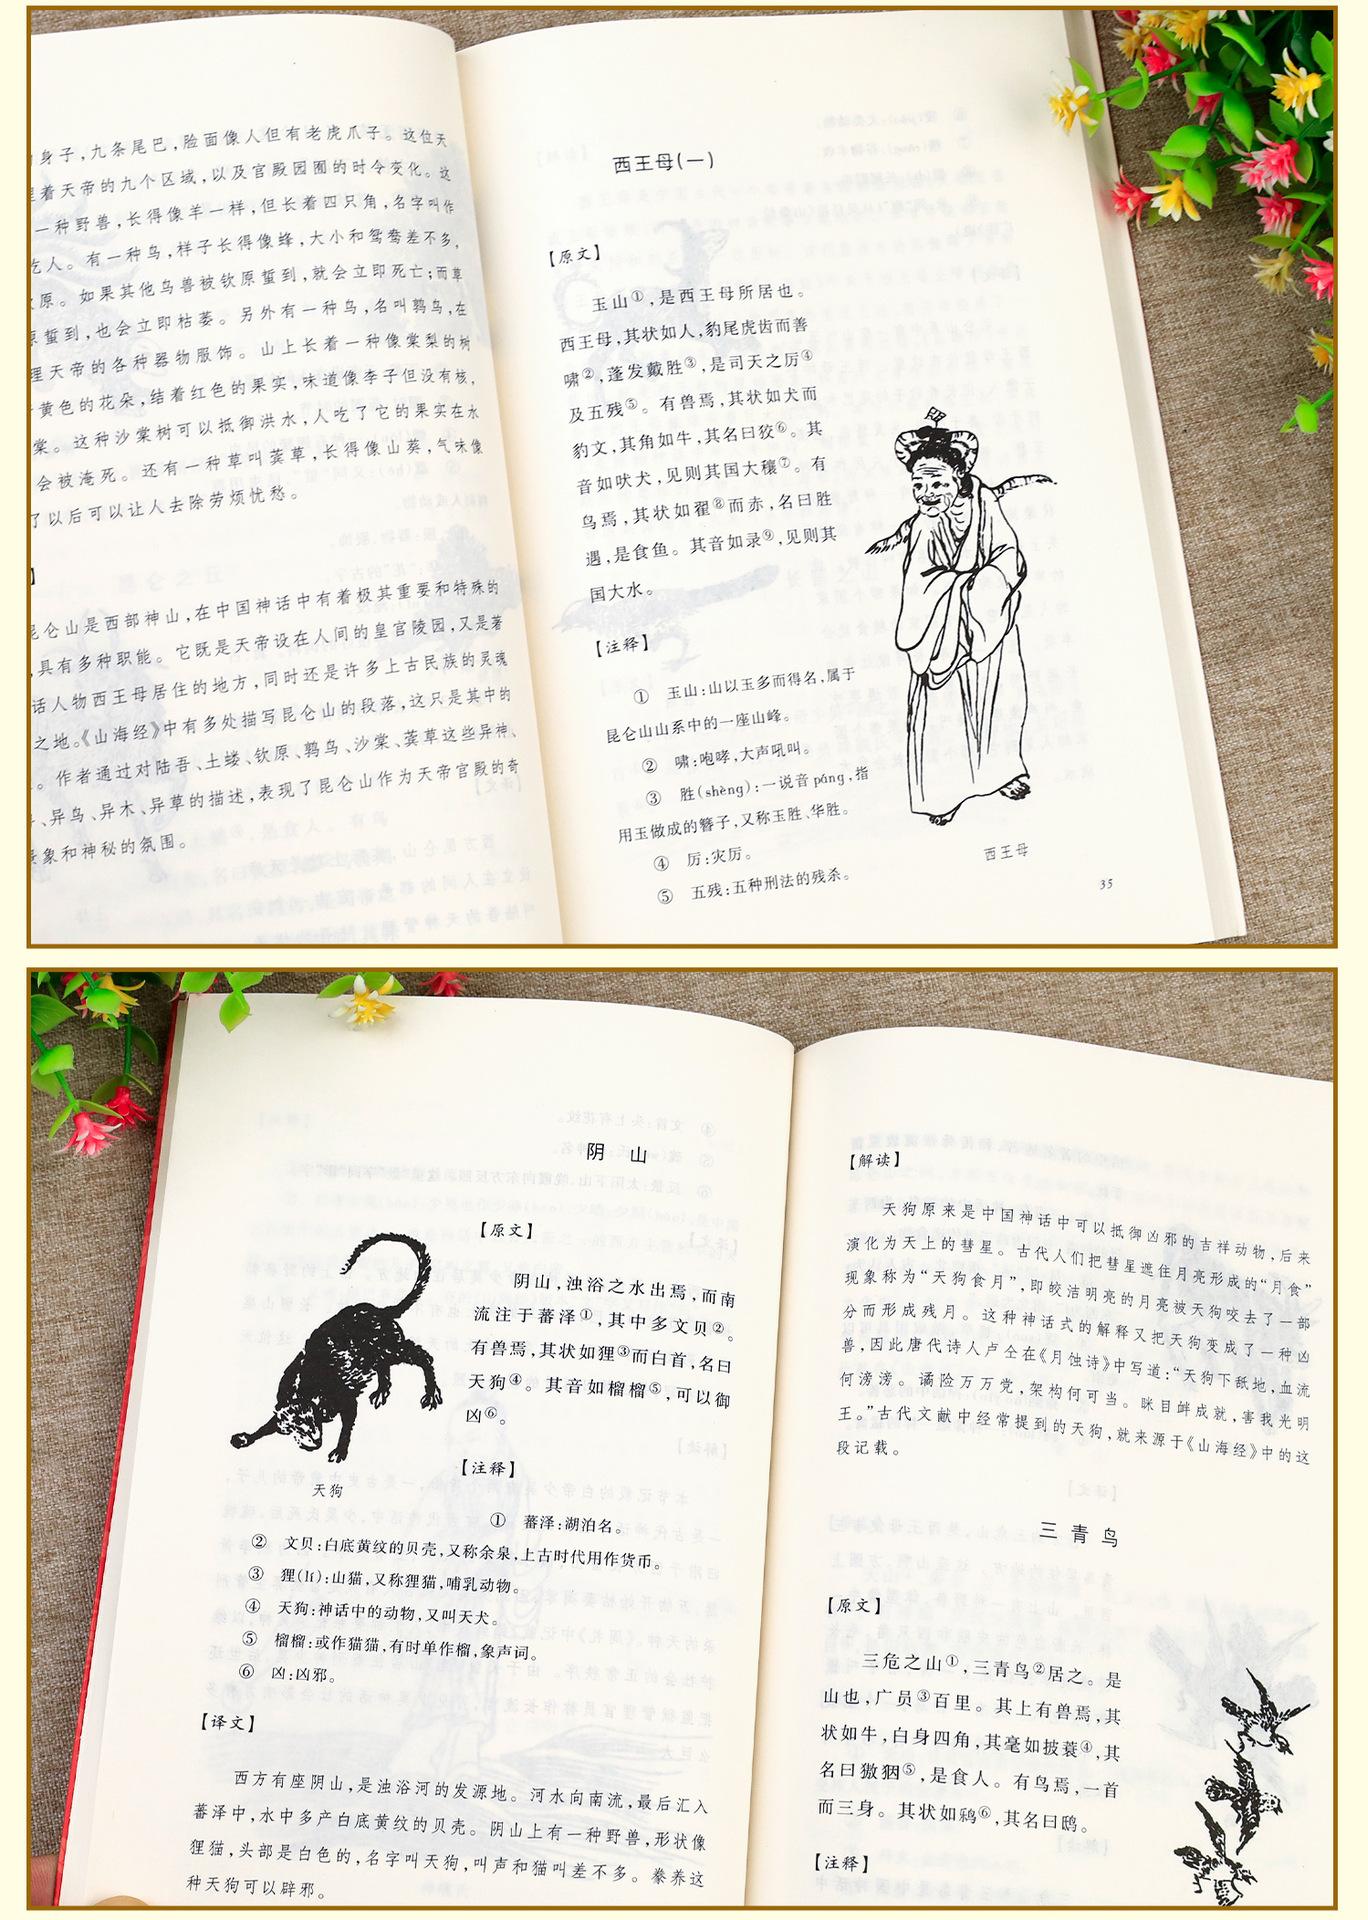 身子，九条尾巴，脸面像人但有老虎爪子。这位天
着天帝的九个区域，以及官殿园囿的时令变化。这
一种野兽，长得像羊一样，但长着四只角，名字叫作
吃人。有一种鸟，样子长得像蜂，大小和鸳鸯差不多，
原。如果其他鸟兽被钦原蜇到，就会立即死亡；而草
蜇到，也会立即枯萎。另外有一种鸟，名叫鹑鸟，在
理天帝的各种器物服饰。山上长着一种像棠梨的树
黄色的花朵，结着红色的果实，味道像李子但没有核，
棠。这种沙棠树可以抵御洪水，人吃了它的果实在水
会被淹死。还有一种草叫薲草，长得像山葵，气味像
了以后可以让人去除劳烦忧愁。
】
昆仑山是西部神山，在中国神话中有着极其重要和特殊的
，具有多种职能。它既是天帝设在人间的皇宫陵园，又是著
话人物西王母居住的地方，同时还是许多上古民族的灵魂
之地。《山海经》中有多处描写昆仑山的段落，这只是其中的
。作者通过对陆吾、土蝼、钦原、鹑鸟、沙棠、薲草这些异神、
、异鸟、异木、异草的描述，表现了昆仑山作为天帝官殿的奇
景象和神秘的氛围。
西王母（一）
【原文】
玉山①，是西王母所居也。
西王母，其状如人，豹尾虎齿而善
啸②，蓬发戴胜③，是司天之厉④
及五残⑤。有兽焉，其状如犬而
豹文，其角如牛，其名曰狡⑥。其
音如吠犬，见则其国大穰⑦。有
鸟焉，其状如翟⑧而赤，名曰胜
遇，是食鱼。其音如录⑨，见则其
国大水。
【注释】
① 玉山：山以玉多而得名，属于
昆仑山山系中的一座山峰。
② 啸：咆哮，大声吼叫。
③ 胜(shèng)：一说音 páng，指
用玉做成的簪子，又称玉胜、华胜。
④ 厉：灾厉。
⑤ 五残：五种刑法的残杀。
西王母
35
阴 山
【原文】
阴山，浊浴之水出焉，而南
流注于蕃泽①，其中多文贝②。
有兽焉，其状如狸③而白首，名曰
天狗④。其音如榴榴⑤，可以御
凶⑥。
天狗
【注释】
① 蕃泽：湖泊名。
② 文贝：白底黄纹的贝壳，又称余泉，上古时代用作货币。
③ 狸(lí)：山猫，又称狸猫，哺乳动物。
④ 天狗：神话中的动物，又叫天犬。
⑤ 榴榴：或作猫猫，有时单作榴，象声词。
⑥ 凶：凶邪。
【译文】
西方有座阴山，是浊浴河的发源地。河水向南流，最后汇入
蕃泽中，水中多产白底黄纹的贝壳。阴山上有一种野兽，形状像
狸猫，头部是白色的，名字叫天狗，叫声和猫叫差不多。豢养这
种天狗可以辟邪。
【解读】
天狗原来是中国神话中可以抵御凶邪的吉祥动物，后来
演化为天上的彗星。古代人们把彗星遮住月亮形成的“月食”
现象称为“天狗食月”，即皎洁明亮的月亮被天狗咬去了一部
分而形成残月。这种神话式的解释又把天狗变成了一种凶
兽，因此唐代诗人卢仝在《月蚀诗》中写道：“天狗下舐地，血流
何滂滂。谲险万万党，架构何可当。眯目衅成就，害我光明
王。”古代文献中经常提到的天狗，就来源于《山海经》中的这
段记载。
三青鸟
【原文】
三危之山①，三青鸟②居之。是
山也，广员③百里。其上有兽焉，其
状如牛，白身四角，其毫如披蓑④，其
名曰獓𤝱⑤，是食人。有鸟焉，一首
而三身。其状如鸦⑥，其名曰鸱。
【注释】